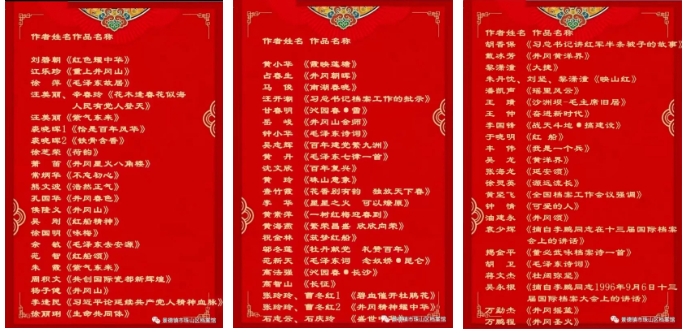 作者姓名作品名称
刘勝朝《红色耀中华》
江乐珍《重上井冈山》
徐萍《毛泽东故居》
汪美丽、辛春玲《花木逢春花似海
人民有党人登天》
汪美丽《紫气东来》
裘晓辉1《恰是百年风华》
裘晓辉2《铁骨含香》
徐芝荣《荷韵》
萧苗《井冈星火八角楼》
常炳华《不忘初心》
熊文波《浩然正气》
孔国华《井冈春色》
侯隆义《井冈山》
吴刚《红船精神》
徐国明《咏梅》
余敏《毛泽东去安源》
范智《红船颂》
朱霞《紫气东来》
周积文《共创国际瓷都新辉煌》
杨子健《井冈山》
李逢民《习近平论延续共产党人精神血脉》
徐丽刚《生命共同体》
景德镇市珠山区档案馆
作者姓名 作品名称
黄小华《霞映莲塘》
占春生《井冈朝晖》
马俊《南湖春晓》
汪开潮《习总书记档案工作的批示》
甘春明《沁园春·雪》
岳峻《井冈山会师》
钟小华《毛泽东诗词》
吴志辉《百年建党繁九洲》
黄丹《毛泽东七律一首》
沈文欣《百年复兴》
黄玲《珠山意象》
查竹霞《花香别有韵 独放天下春》
李华《星星之火 可以燎原》
黄崇萍《一树红梅迎春到》
黄海燕《繁荣昌盛 欣欣向荣》
祝金林《筑梦红船》
邹冬莲《牡丹献党 礼赞百年》
范新天《毛泽东词 念奴娇·昆仑》
高洁强《沁园春·长沙》
高智山《长征》
张玲玲、曹冬红1《碧血催开杜鹃花》
张玲玲、曹冬红2《井冈精神耀中华》
石虎云、石庆玲
景德镇市珠山区档案馆
作者姓名 作品名称
胡香保《习总书记讲红军半条被子的故事》
戴冰芳《井冈黄洋界》
黎潇潼《大捷》
朱丹忱、刘坚、黎潇潼《映山红》
潘凯声《瑶里风云》
王靖《沙洲坝-毛主席旧居》
王仲《奋进新时代》
李国锋《战天斗地·搞建设》
于晓明《红船》
车伟《我是一个兵》
吴龙《黄洋界》
张海龙《延安颂》
徐灵英《源远流长》
黄坚飞《全国档案工作会议强调》
钟倩《可爱的人》
涂建永《井冈颂》
袁少辉《摘自李鹏同志在十三届国际档案
会上的讲话》
揭金平《董必武咏档案诗一首》
胡卫《毛泽东诗词》
蒋文杰《杜鹃弥坚》
吴永根《摘自李鹏同志1996年9月6日十三
届国际档案大会上的讲话》
万勋杰《井冈摇篮》
万鹏程《井冈圣火》
景德镇市珠山区档案馆